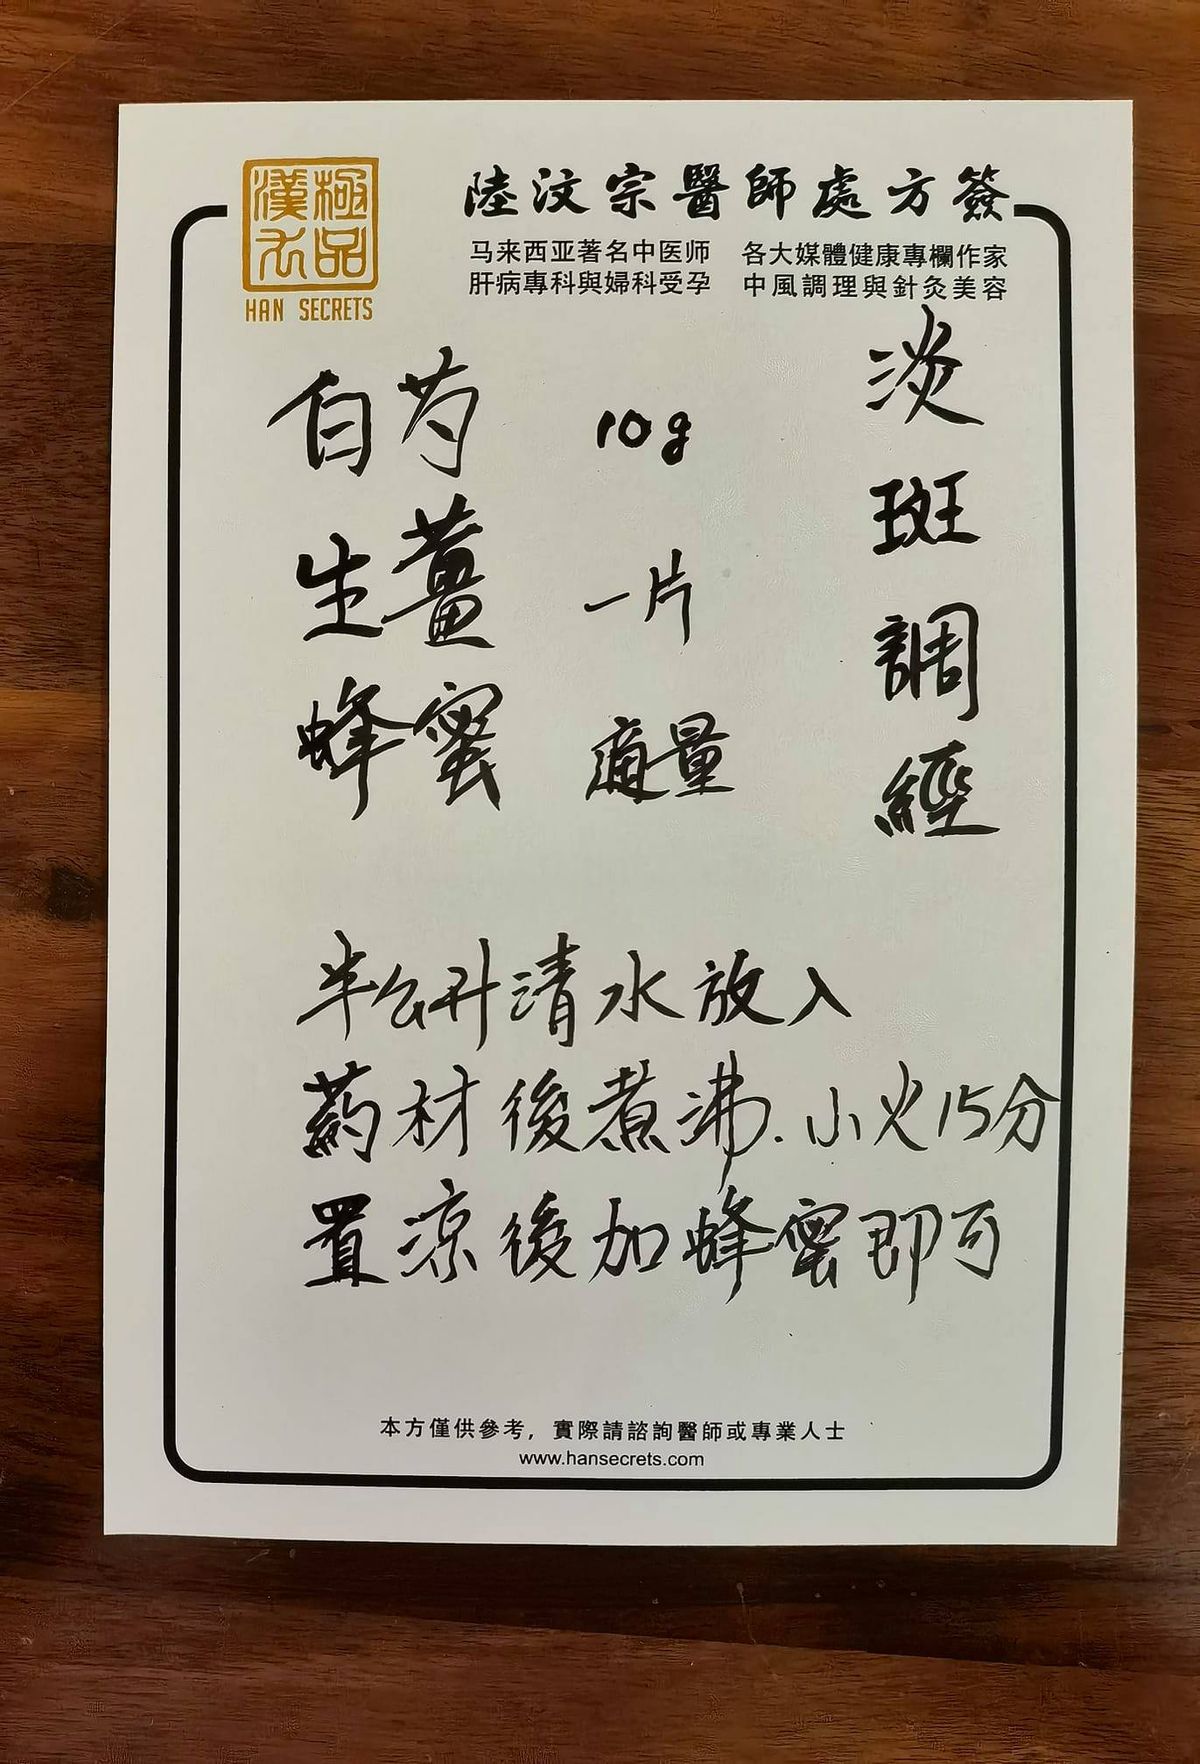 極品
漢方
HAN SECRETS
陸汶宗醫師處方簽
马来西亚著名中医师 各大媒體健康專欄作家
肝病專科與婦科受孕 中風調理與針灸美容
淡斑調經
白芍 10g
生薑 一片
蜂蜜 適量
半公升清水放入
药材後煮沸.小火15分
置凉後加蜂蜜即可
本方僅供參考，實際請諮詢醫師或專業人士
www.hansecrets.com